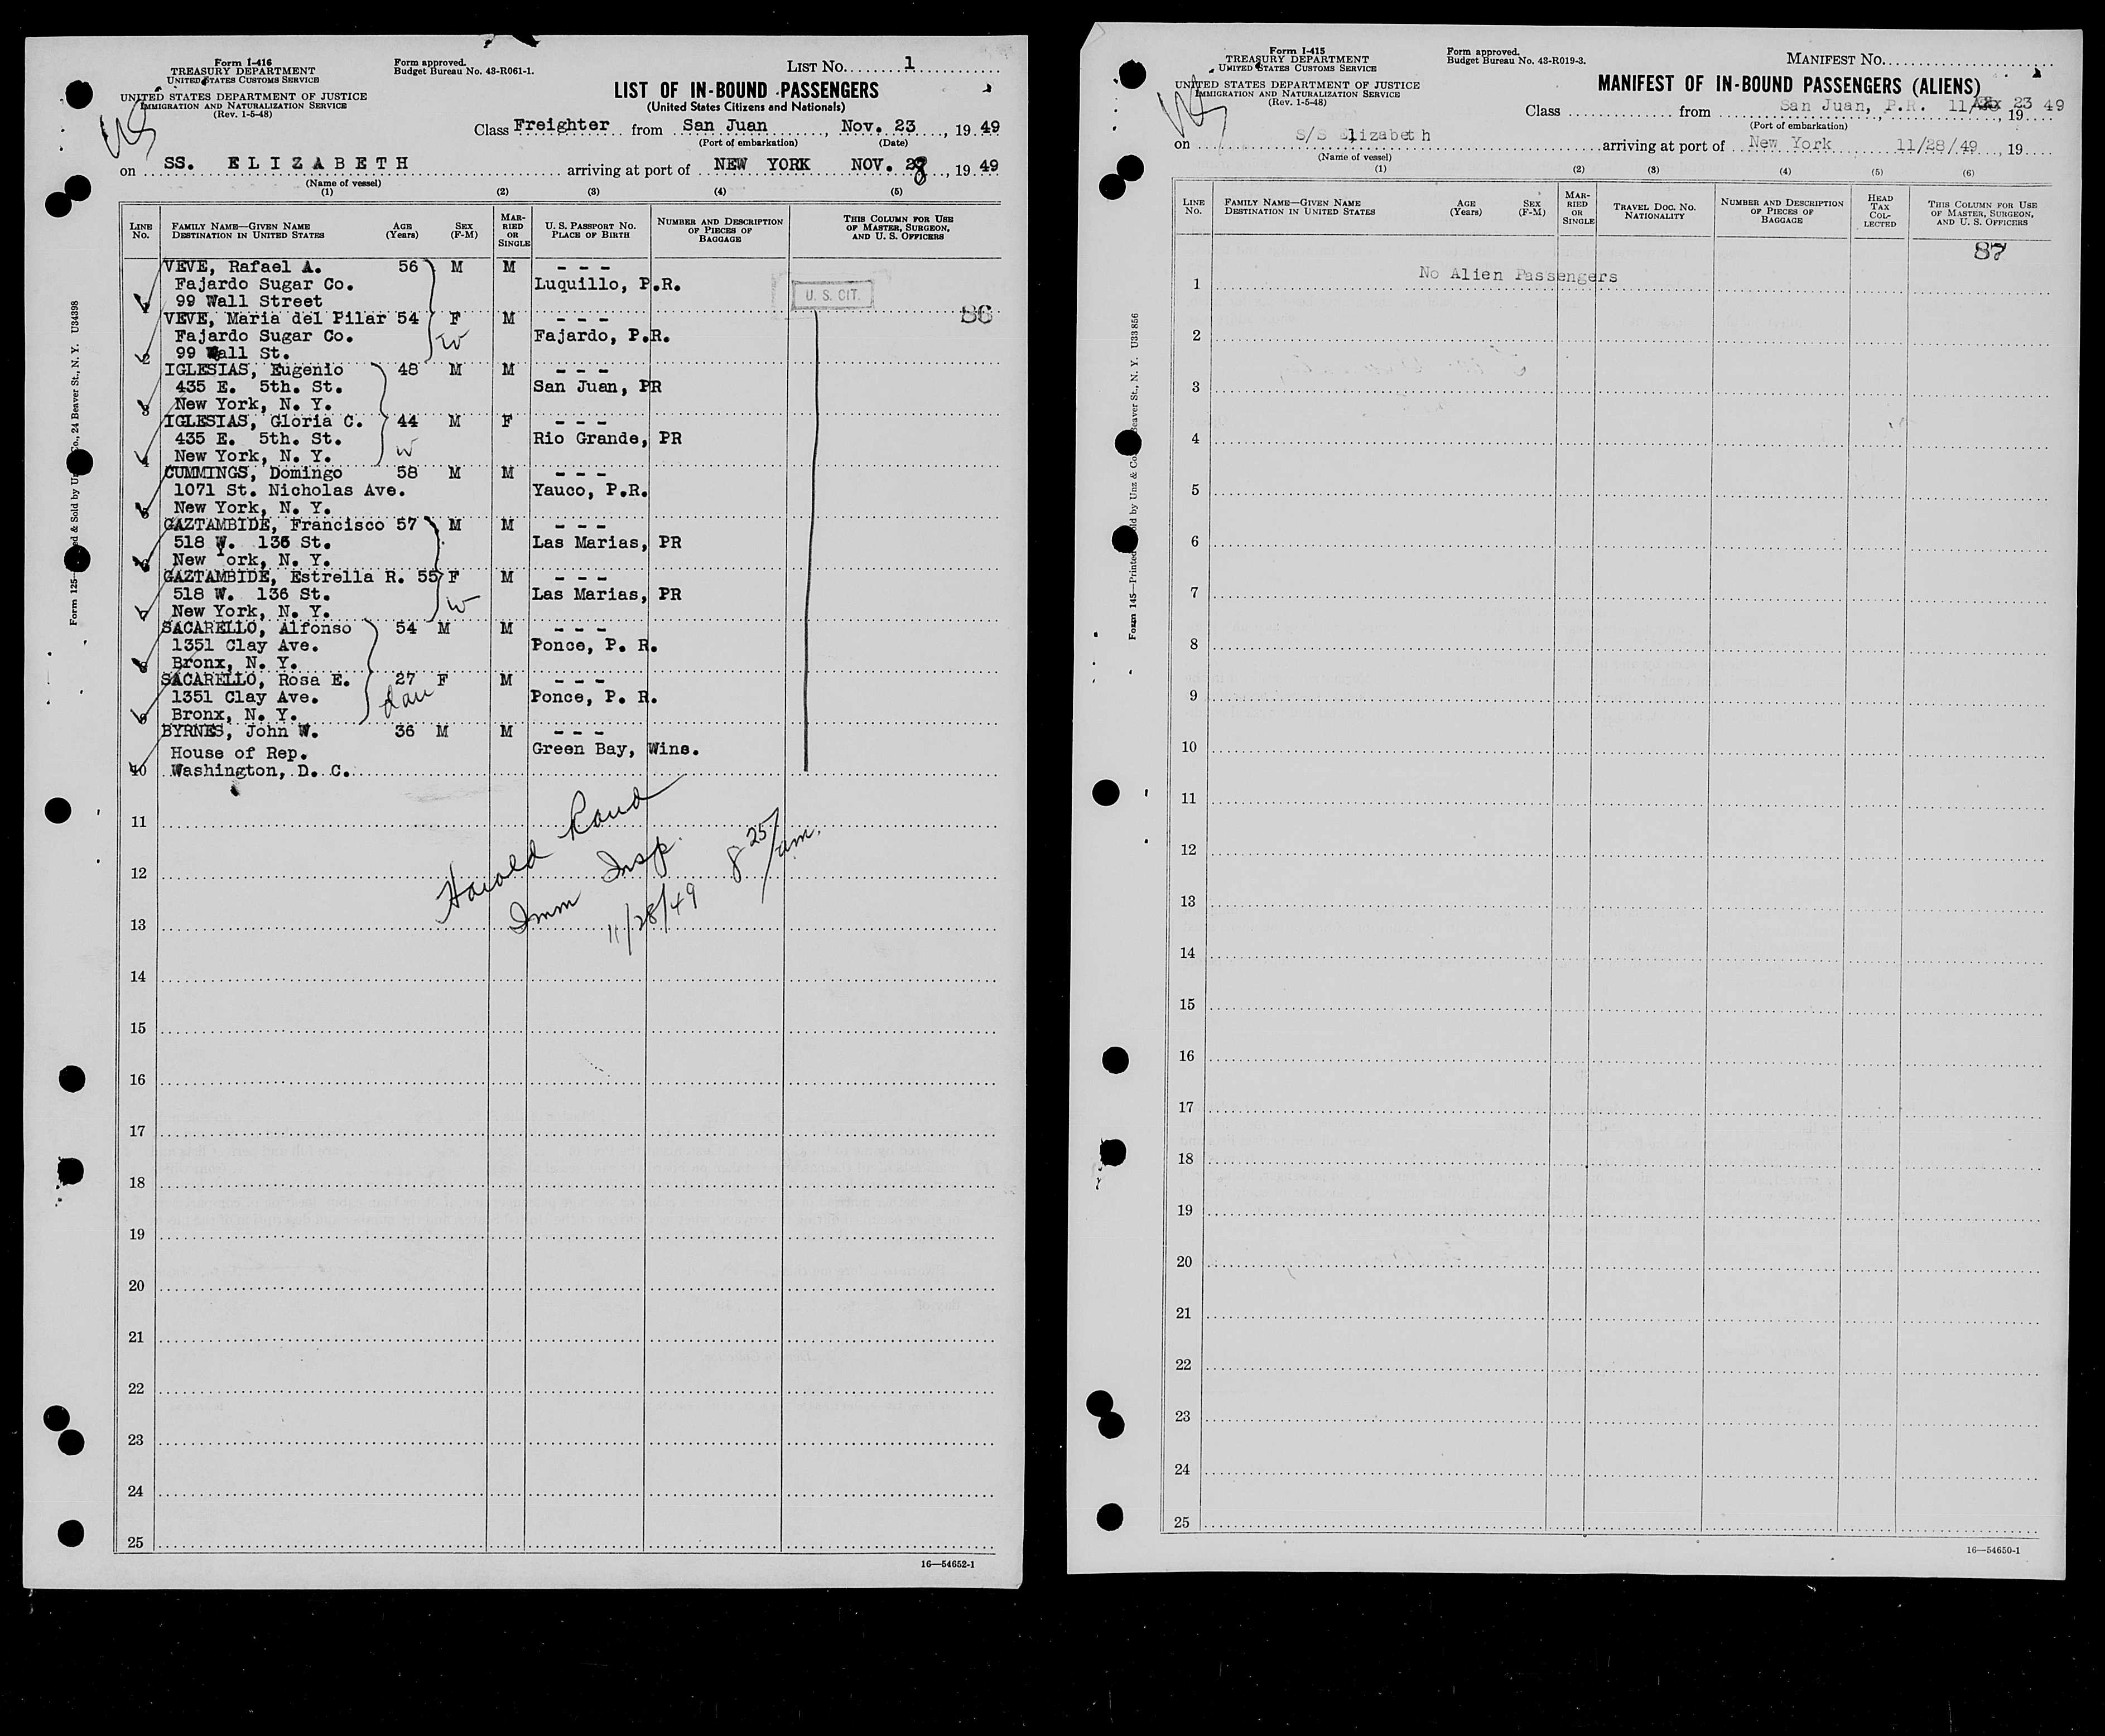 Form I-416
TREASURY DEPARTMENT
UNITED STATES CUSTOMS SERVICE
UNITED STATES DEPARTMENT OF JUSTICE
IMMIGRATION AND NATURALIZATION SERVICE
(Rev. 1-5-48)
Form approved.
Budget Bureau No. 43-R061-1.
LIST NO. 1
LIST OF IN-BOUND PASSENGERS
(United States Citizens and Nationals)
Class Freighter from San Juan, Nov. 23, 1949
(Port of embarkation) (Date)
on SS. ELIZABETH arriving at port of NEW YORK NOV. 28, 1949
(Name of vessel)
(1) (2) (3) (4) (5)
LINE NO. FAMILY NAME—GIVEN NAME DESTINATION IN UNITED STATES AGE (Years) SEX (F-M) MARRIED OR SINGLE U. S. PASSPORT NO. PLACE OF BIRTH NUMBER AND DESCRIPTION OF PIECES OF BAGGAGE THIS COLUMN FOR USE OF MASTER, SURGEON, AND U. S. OFFICERS
VEVE, Rafael A. 56 M M - - -
Fajardo Sugar Co. Luquillo, P.R.
1 99 Wall Street U. S. CIT.
VEVE, Maria del Pilar 54 F M - - - 86
Fajardo Sugar Co. W Fajardo, P.R.
2 99 Wall St.
IGLESIAS, Eugenio 48 M M - - -
435 E. 5th. St. San Juan, PR
3 New York, N. Y.
IGLESIAS, Gloria C. 44 M F - - -
435 E. 5th. St. W Rio Grande, PR
4 New York, N. Y.
CUMMINGS, Domingo 58 M M - - -
1071 St. Nicholas Ave. Yauco, P.R.
5 New York, N. Y.
GAZTAMBIDE, Francisco 57 M M - - -
518 W. 136 St. Las Marias, PR
6 New York, N. Y.
GAZTAMBIDE, Estrella R. 55 F M - - -
518 W. 136 St. W Las Marias, PR
7 New York, N. Y.
SACARELLO, Alfonso 54 M M - - -
1351 Clay Ave. Ponce, P. R.
8 Bronx, N. Y.
SACARELLO, Rosa E. 27 F M - - -
1351 Clay Ave. dau Ponce, P. R.
9 Bronx, N. Y.
BYRNES, John W. 36 M M - - -
House of Rep. Green Bay, Wins.
10 Washington, D. C.
11
12
13
Harold Rand
Imm Insp.
11/28/49 8 25/am.
14
15
16
17
18
19
20
21
22
23
24
25
16—54652-1
Form I-415
TREASURY DEPARTMENT
UNITED STATES CUSTOMS SERVICE
UNITED STATES DEPARTMENT OF JUSTICE
IMMIGRATION AND NATURALIZATION SERVICE
(Rev. 1-5-48)
Form approved.
Budget Bureau No. 43-R019-3.
MANIFEST NO.
MANIFEST OF IN-BOUND PASSENGERS (ALIENS)
Class from San Juan, P.R. 11/ 23, 19 49
(Port of embarkation)
on S/S Elizabeth arriving at port of New York 11/28/49, 19
(Name of vessel)
(1) (2) (3) (4) (5) (6)
LINE NO. FAMILY NAME—GIVEN NAME DESTINATION IN UNITED STATES AGE (Years) SEX (F-M) MARRIED OR SINGLE TRAVEL DOC. NO. NATIONALITY NUMBER AND DESCRIPTION OF PIECES OF BAGGAGE HEAD TAX COLLECTED THIS COLUMN FOR USE OF MASTER, SURGEON, AND U. S. OFFICERS
87
1 No Alien Passengers
2
3
4
5
6
7
8
9
10
11
12
13
14
15
16
17
18
19
20
21
22
23
24
25
16—54650-1